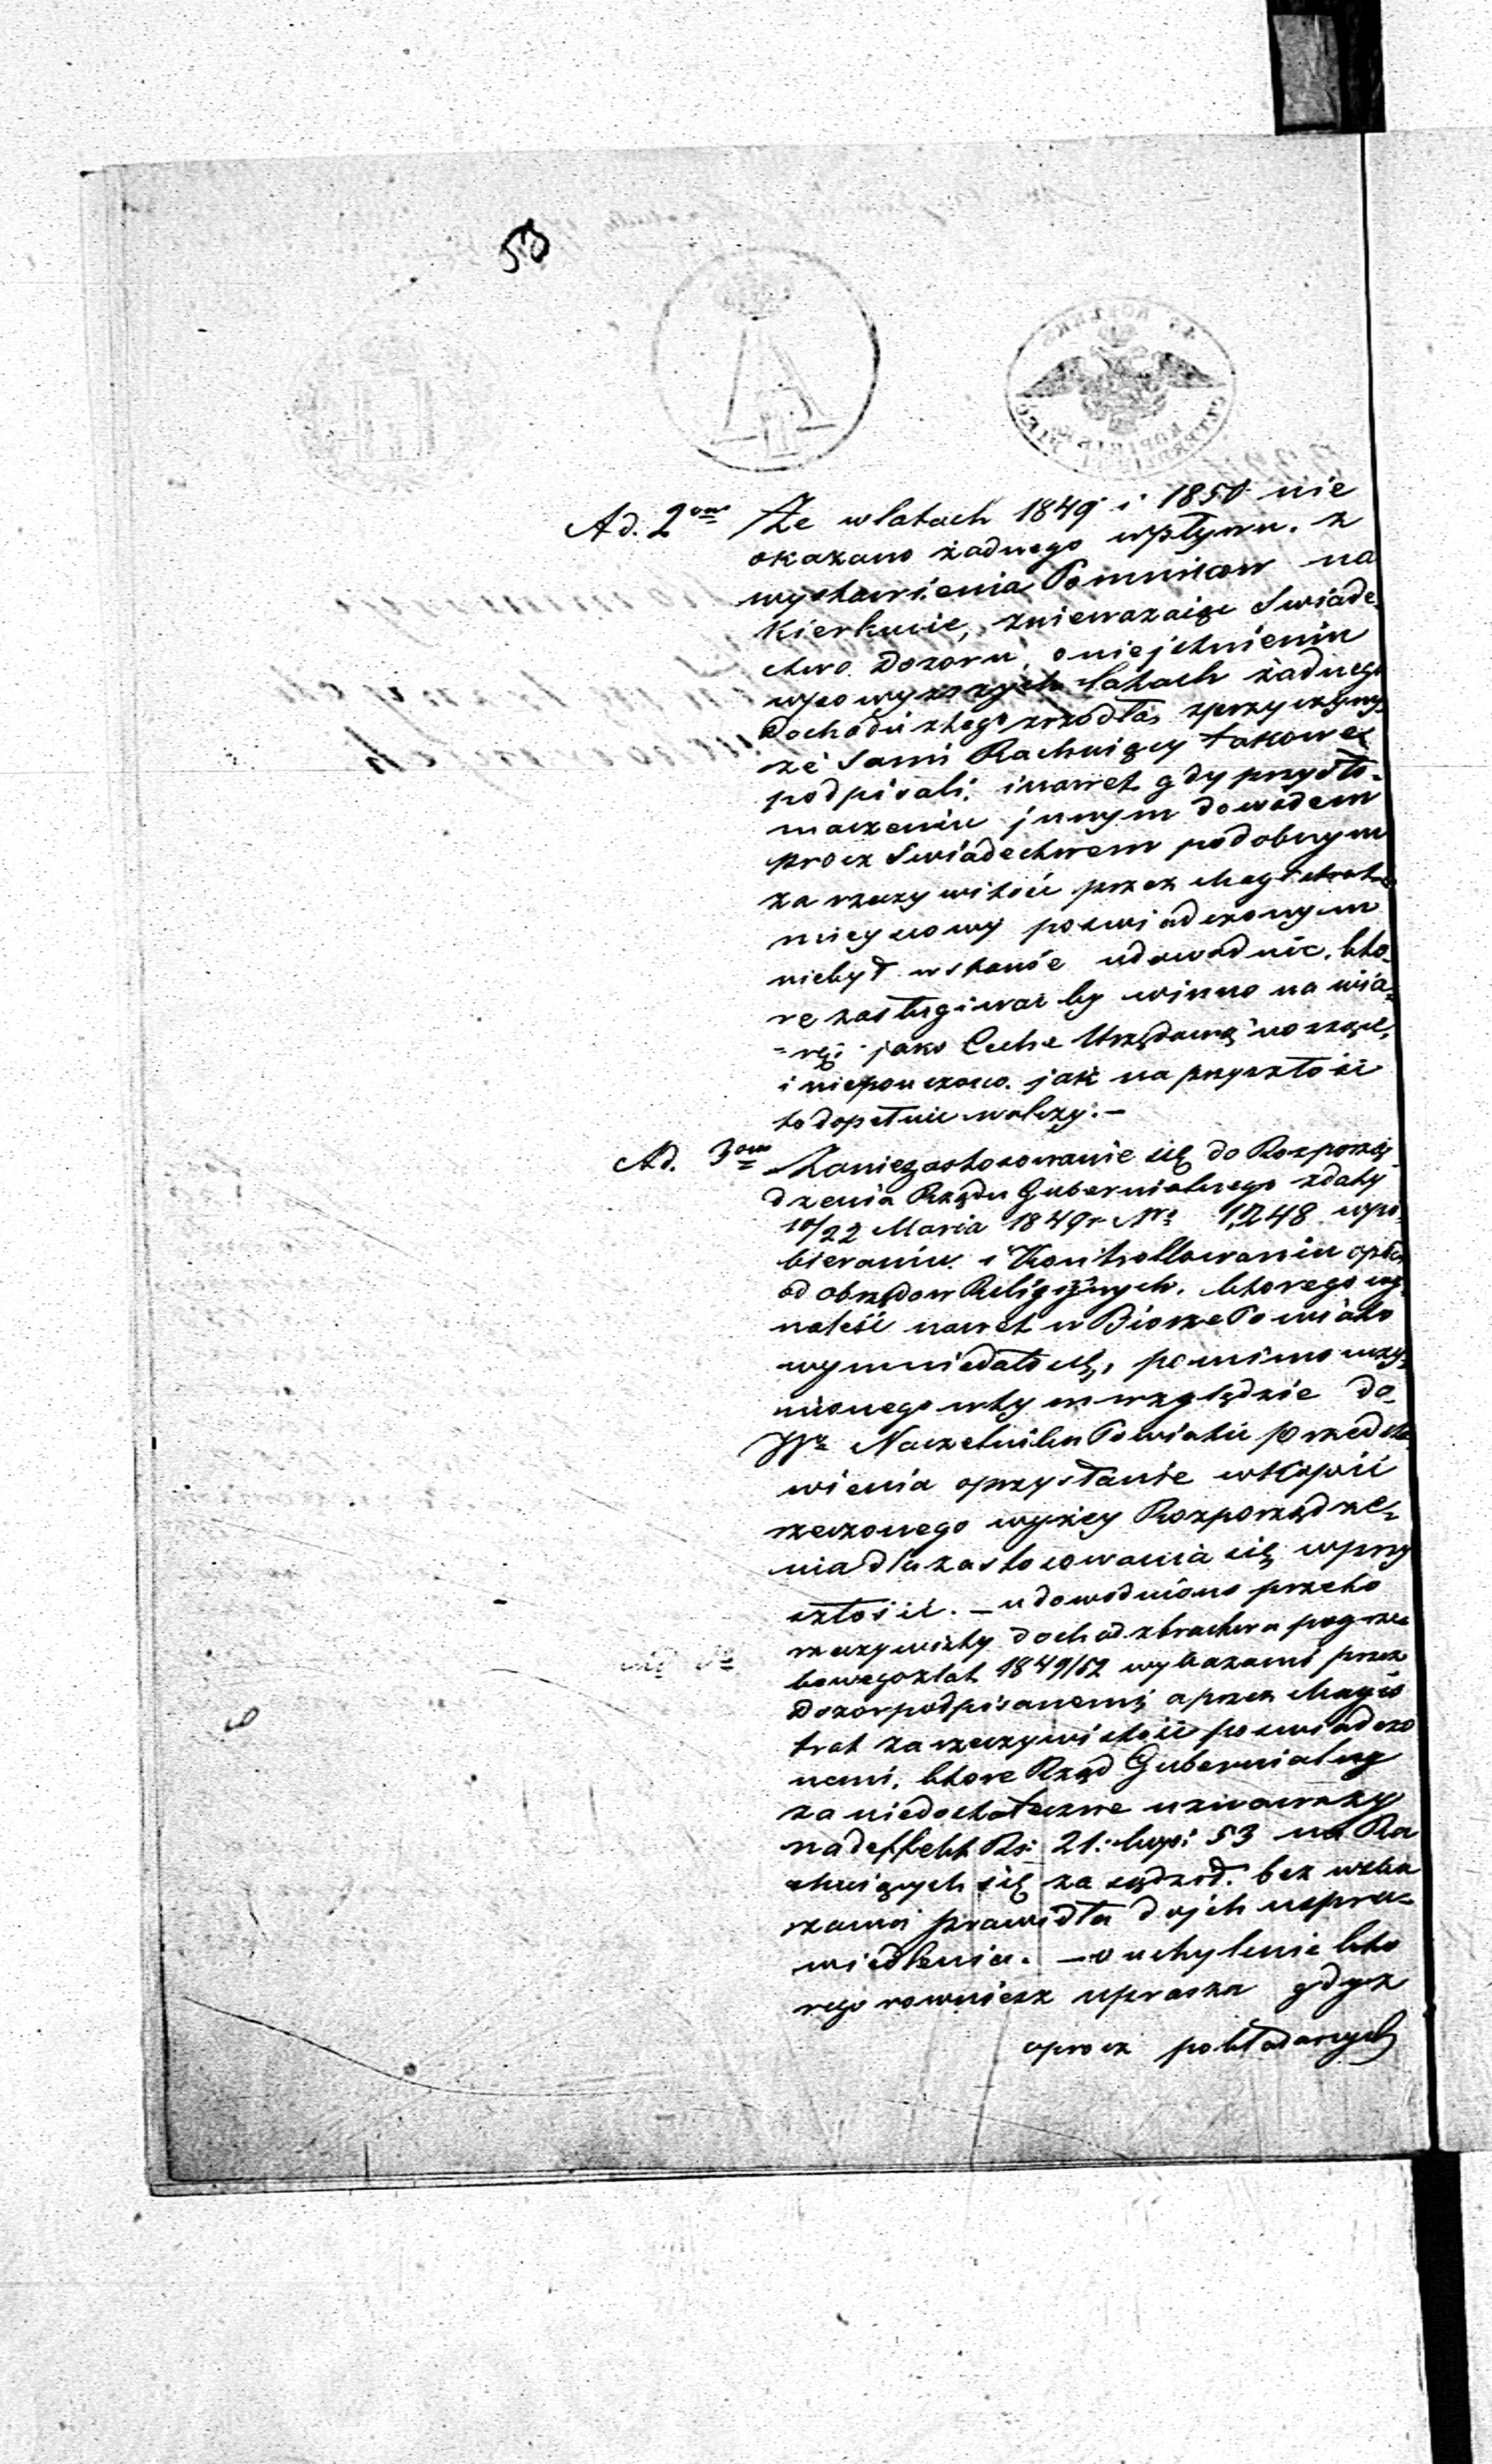 53
Ad. 2do Że wlatach 1849 i 1850 nie
okazano żadnego wpływu z
wystawienia Pomnikow na
Kierkucie, znieważaiąc Swiade
ctwo Dozoru, o nieistnieniu
wpowyższych latach żadnego
dochodu ztego zrzodła, zprzyczyny
że Sami Rachuiący takowe
podpisali, inawet gdy przytło-
maczeniu innym dowodem
procz Swiadectwem podobnym
za rzeczywistość przez Magistrat
mieyscowy poswiadczonym
niebył wstanie udowodnić, kto-
re zasługiwać by winno na wia-
=rę jako Cechę Urzędową noszące,
i niepouczono jak na przyszłość
to dopełnić należy.—
Ad. 3um Zaniezastosowanie się do Rozporzą
dzenia Rządu Gubernialnego zdaty
10/22 Marca 1849r No 1,248 wpo-
bieraniu i Kontrollowaniu opłat
od obrzędow Religijnych, ktorego wy
naleść nawet w Biorze Powiatu
wymniedało się, pomimo uczy-
nionego wtym względzie do
JWo Naczelnika Powiatu przedsta
wienia oprzysłanie wKopii
rzeczonego wyżey Rozporządze-
nia dla zastosowania się wprzy
szłości. — udowodniono przeto
rzeczywisty dochod zbractwa pogrze
bowego zlat 1849/52 wykazami przez
Dozor podpisanemi aprzez Magis
trat zarzeczywistość poswiadczo
nemi, ktore Rząd Gubernialny
za niedostateczne uznawszy
nadeffekt Rs: 21: kop: 53 na Ra
chuiących się zasądził, bez wska
zania prawidła do jch uspra-
wiedlenia. — o uchylenie kto
rego rowniesz uprasza gdyż
oprocz pokładanych